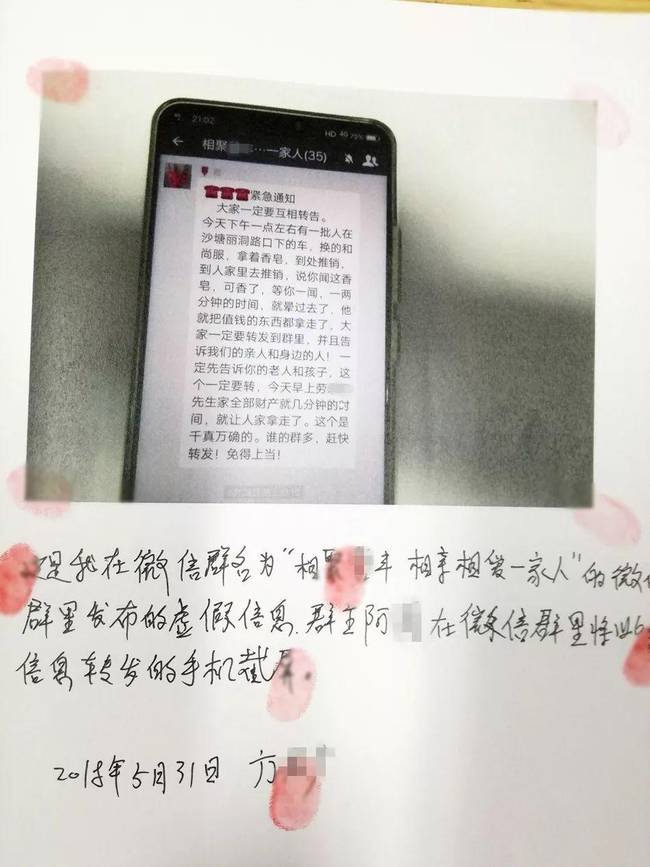 21:02
HD 4G 79%
相聚 ...一家人(35)
紧急通知
大家一定要互相转告。
今天下午一点左右有一批人在
沙塘丽洞路口下的车，换的和
尚服，拿着香皂，到处推销，
到人家里去推销，说你闻这香
皂，可香了，等你一闻，一两
分钟的时间，就晕过去了，他
就把值钱的东西都拿走了，大
家一定要转发到群里，并且告
诉我们的亲人和身边的人！一
定先告诉你的老人和孩子，这
个一定要转，今天早上劳
先生家全部财产就几分钟的时
间，就让人家拿走了。这个是
千真万确的。谁的群多，赶快
转发！免得上当！
是我在微信群名为“相聚 丰 相亲相爱一家人”的微信
群里发布的虚假信息.群主阿 在微信群里将此
信息转发的手机截屏.
5月31日 方